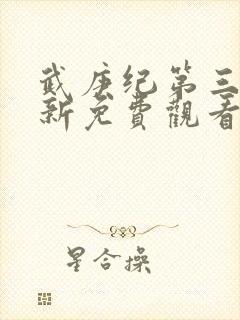 武庚纪第三
新免費觀看
星合操